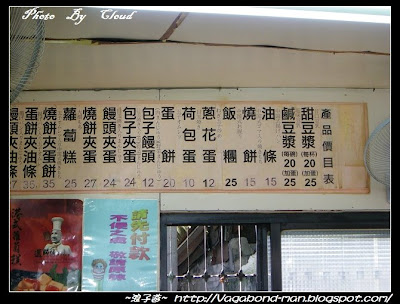 Photo By Cloud
產品價目表
甜豆漿 (每杯) 20 (加蛋) 25
鹹豆漿 (每碗) 20 (加蛋) 25
油條 15
燒餅 15
飯糰 25
蔥花蛋 12
荷包蛋 10
蛋餅 20
包子饅頭 12
包子夾蛋 24
饅頭夾蛋 24
燒餅夾蛋 27
蘿蔔糕 25
燒餅夾油條 35
蛋餅夾油條 35
饅頭夾油條
請先付款
不便之處
敬請原諒
~浪子夢~ http://Vagabond-nan.blogspot.com/